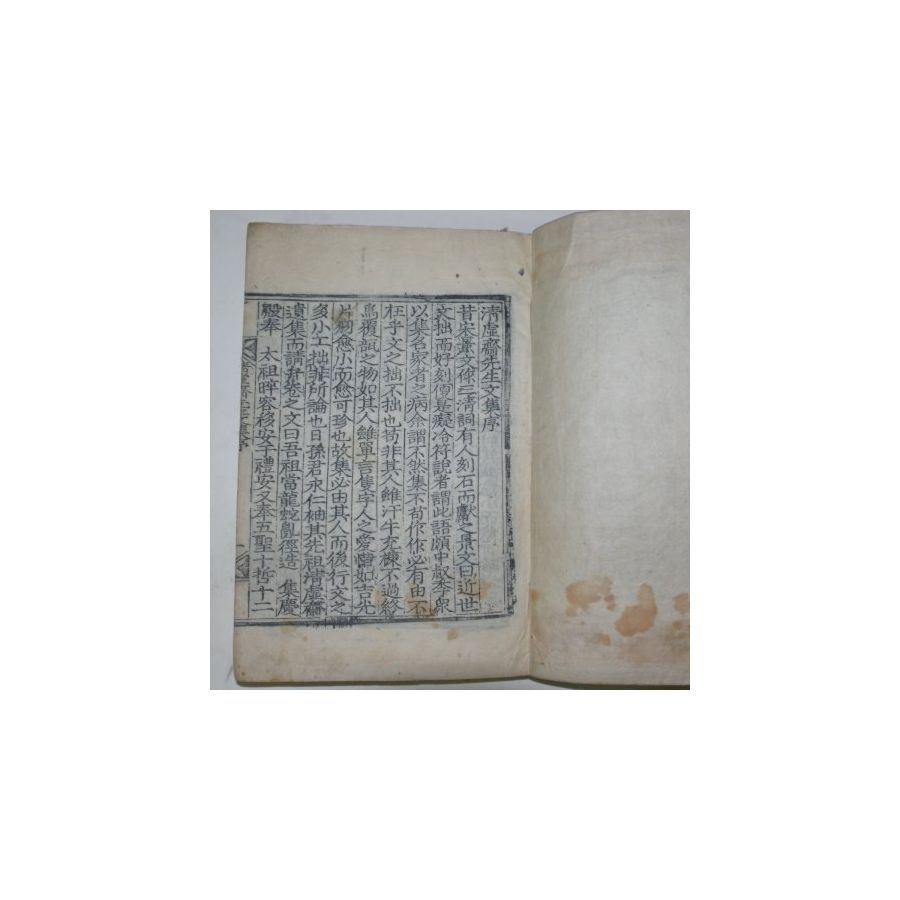 清虛齋先生文集序
昔宋景文修三清詞有人刻石而獻之景文曰近世
文拙而好刻便是癡冷符說者謂此語頗中叔季泉
以集名家者之病余謂不然集不苟作作必有由不
在乎文之拙不拙也苟非其人雖汗牛充棟不過終
爲覆瓿之物如其人雖單言隻字人之愛當如吉光
片羽愈小而愈可珍也故集必由其人而後行文之
多小工拙非所論也日孫君永仁袖其先祖淸虛齋
遺集而請弁卷之文曰吾祖當龍蛇亂徑造 集慶
殿奉 太祖睟容移安于禮安又奉五聖十哲十二